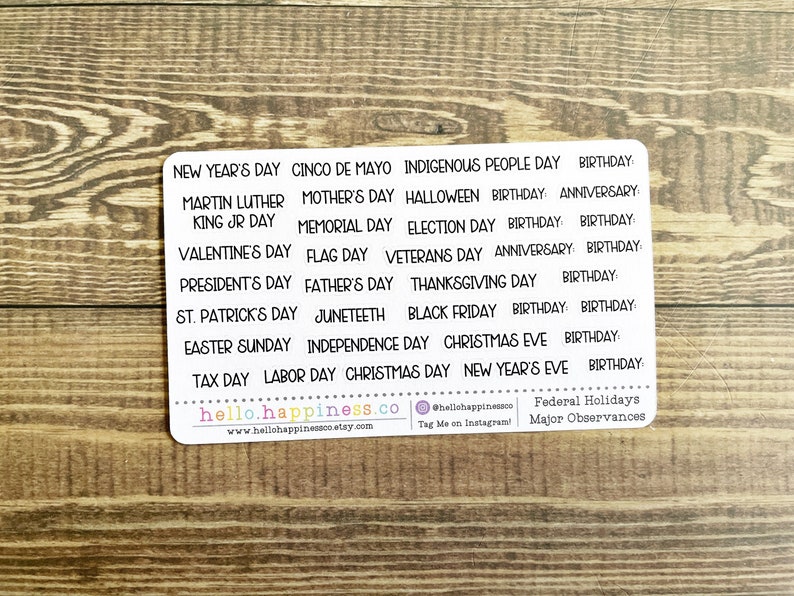 NEW YEAR'S DAY CINCO DE MAYO INDIGENOUS PEOPLE DAY BIRTHDAY:
MARTIN LUTHER KING JR DAY MOTHER'S DAY HALLOWEEN BIRTHDAY: ANNIVERSARY:
MEMORIAL DAY ELECTION DAY BIRTHDAY: BIRTHDAY:
VALENTINE'S DAY FLAG DAY VETERANS DAY ANNIVERSARY: BIRTHDAY:
PRESIDENT'S DAY FATHER'S DAY THANKSGIVING DAY BIRTHDAY:
ST. PATRICK'S DAY JUNETEETH BLACK FRIDAY BIRTHDAY: BIRTHDAY:
EASTER SUNDAY INDEPENDENCE DAY CHRISTMAS EVE BIRTHDAY:
TAX DAY LABOR DAY CHRISTMAS DAY NEW YEAR'S EVE BIRTHDAY:
hello.happiness.co
www.hellohappinessco.etsy.com
@hellohappinessco
Tag Me on Instagram!
Federal Holidays
Major Observances